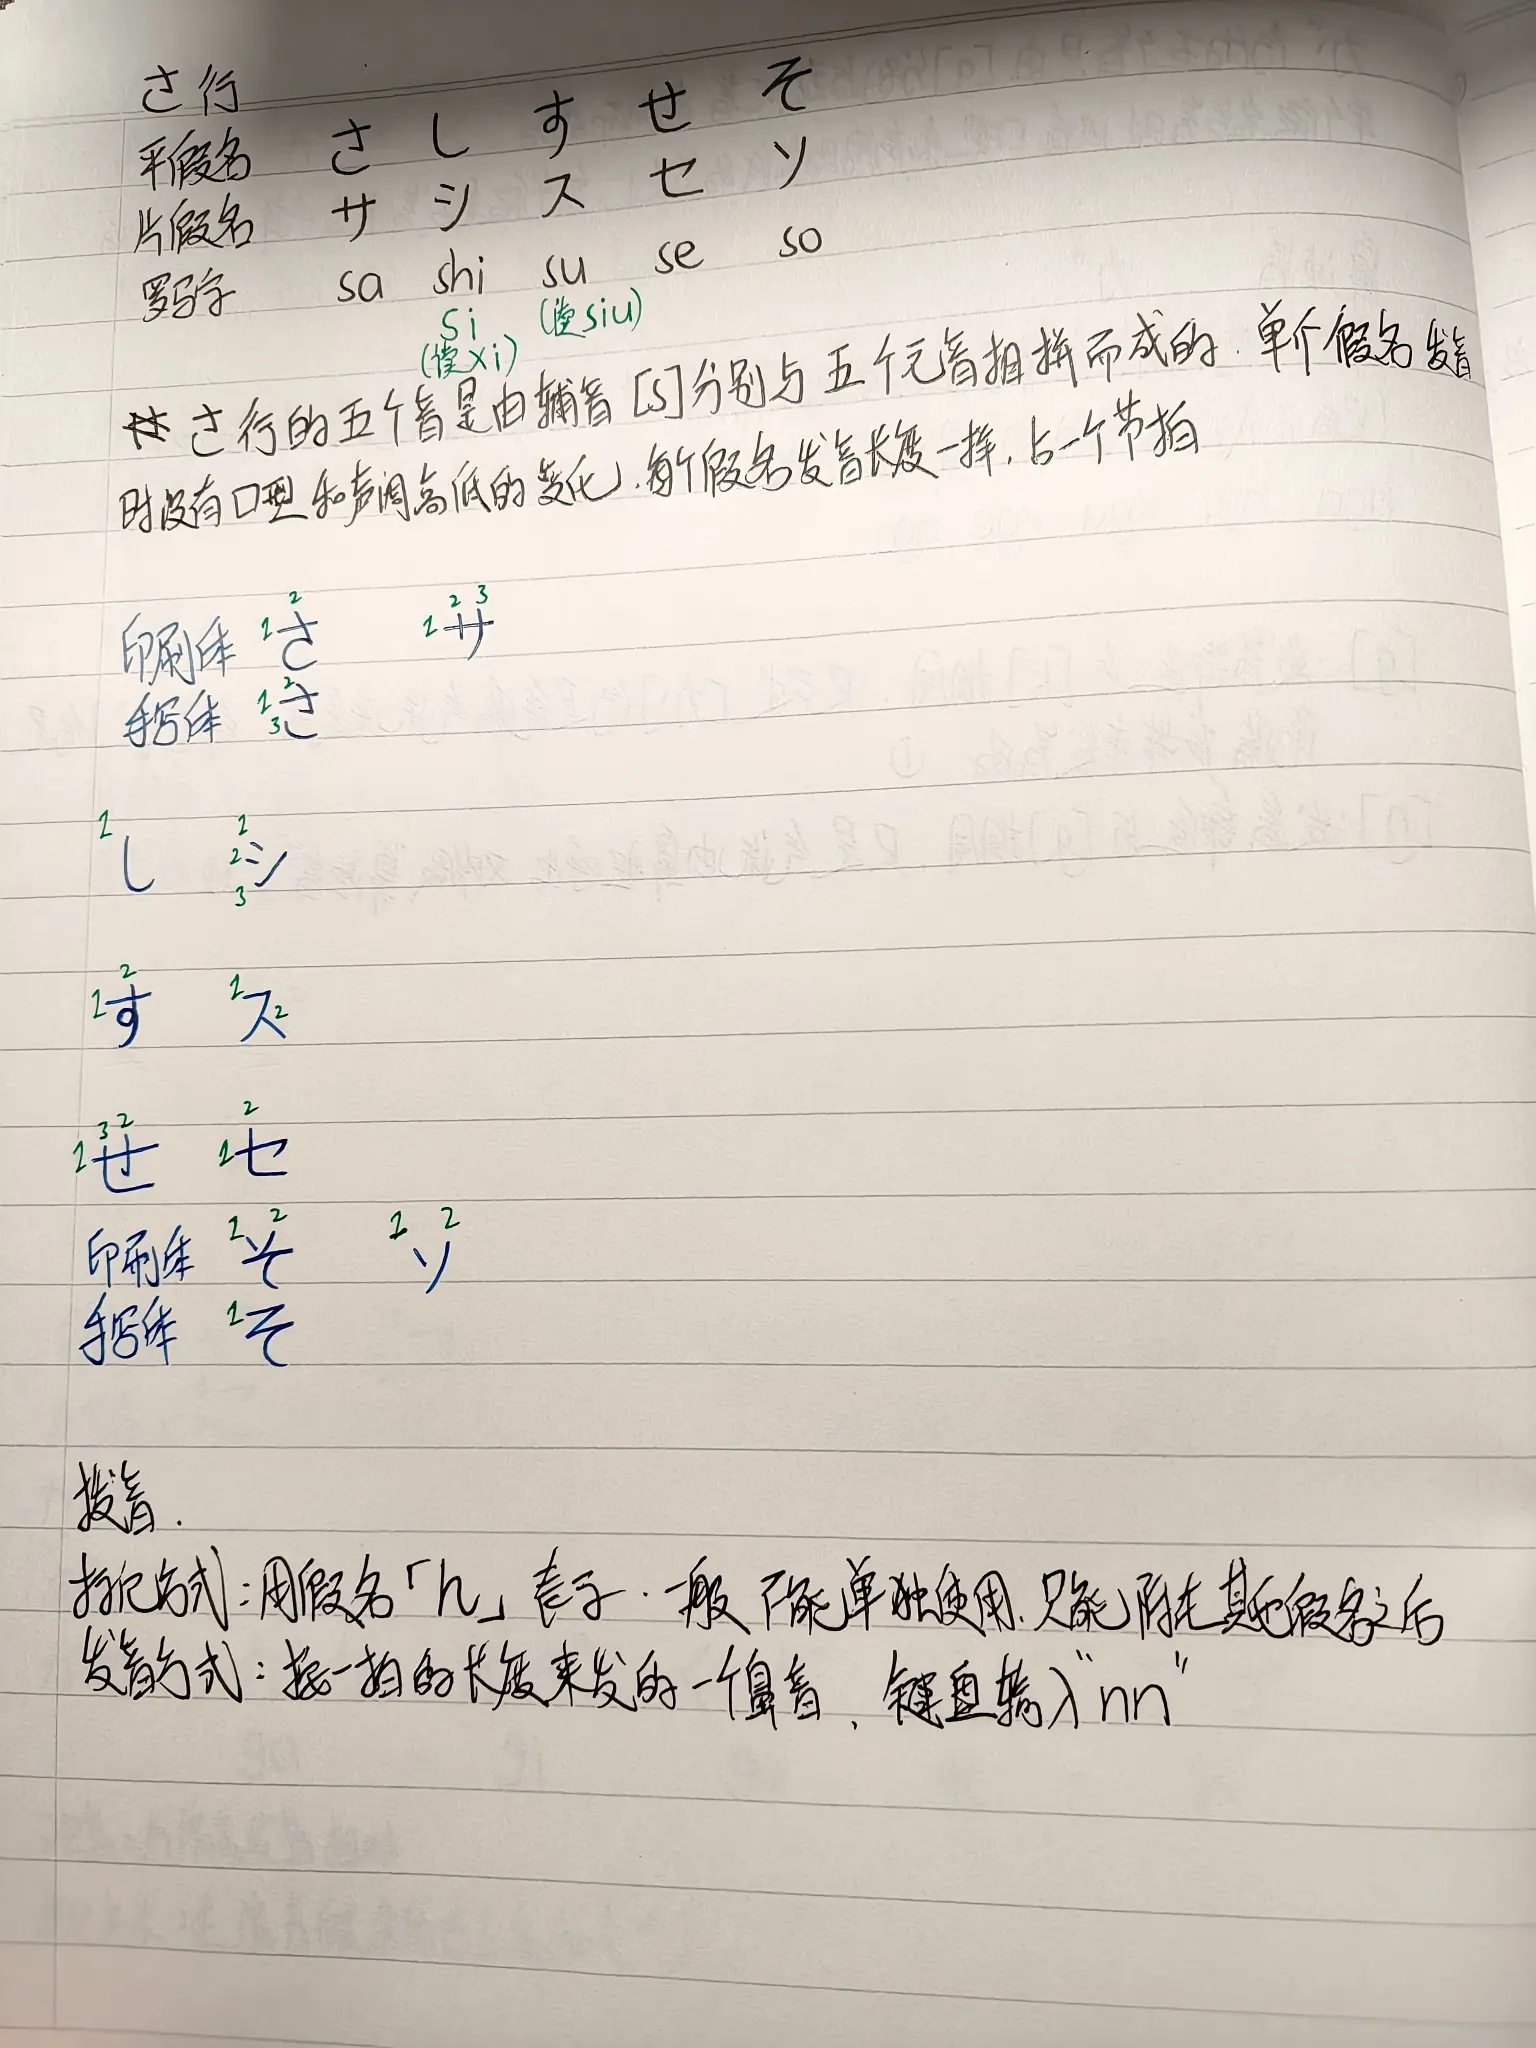 さ行
平假名 さ し す せ そ
片假名 サ シ ス セ ソ
罗马字 sa shi su se so
si (读siu)
(读xi)
さ行的五个音是由辅音[s]分别与五个元音相拼而成的.单个假名发音
时没有口型和声调高低的变化,每个假名发音长度一样.占一个节拍
2 2 3
印刷体 1 さ 1 サ
手写体 1 2 3 さ
1 し 1 2 3 シ
2 1
1 す ス 2
3 2 2
1 せ 1 セ
1 2 1 2
印刷体 そ ソ
手写体 1 そ
拨音.
书写方式:用假名「ん」表示.一般不能单独使用.只能附在其他假名之后
发音方式:按一拍的长度来发的一个鼻音、键盘输入"nn"